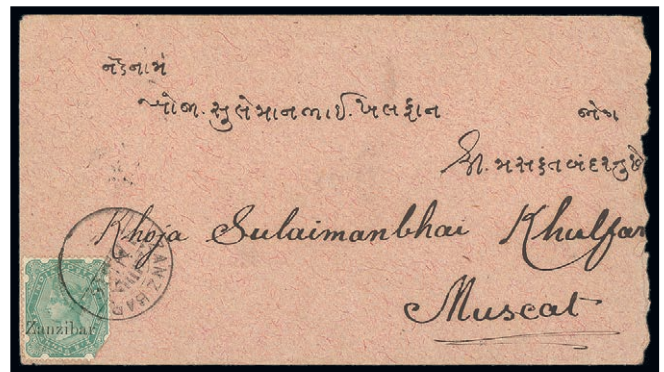 ખોજા. સુલેમાનભાઈ. ખલફાન જોગ
શ્રી. મસકત બંદર
Khoja Sulaimanbhai Khulfan
Muscat
ZANZIBAR
Zanzibar